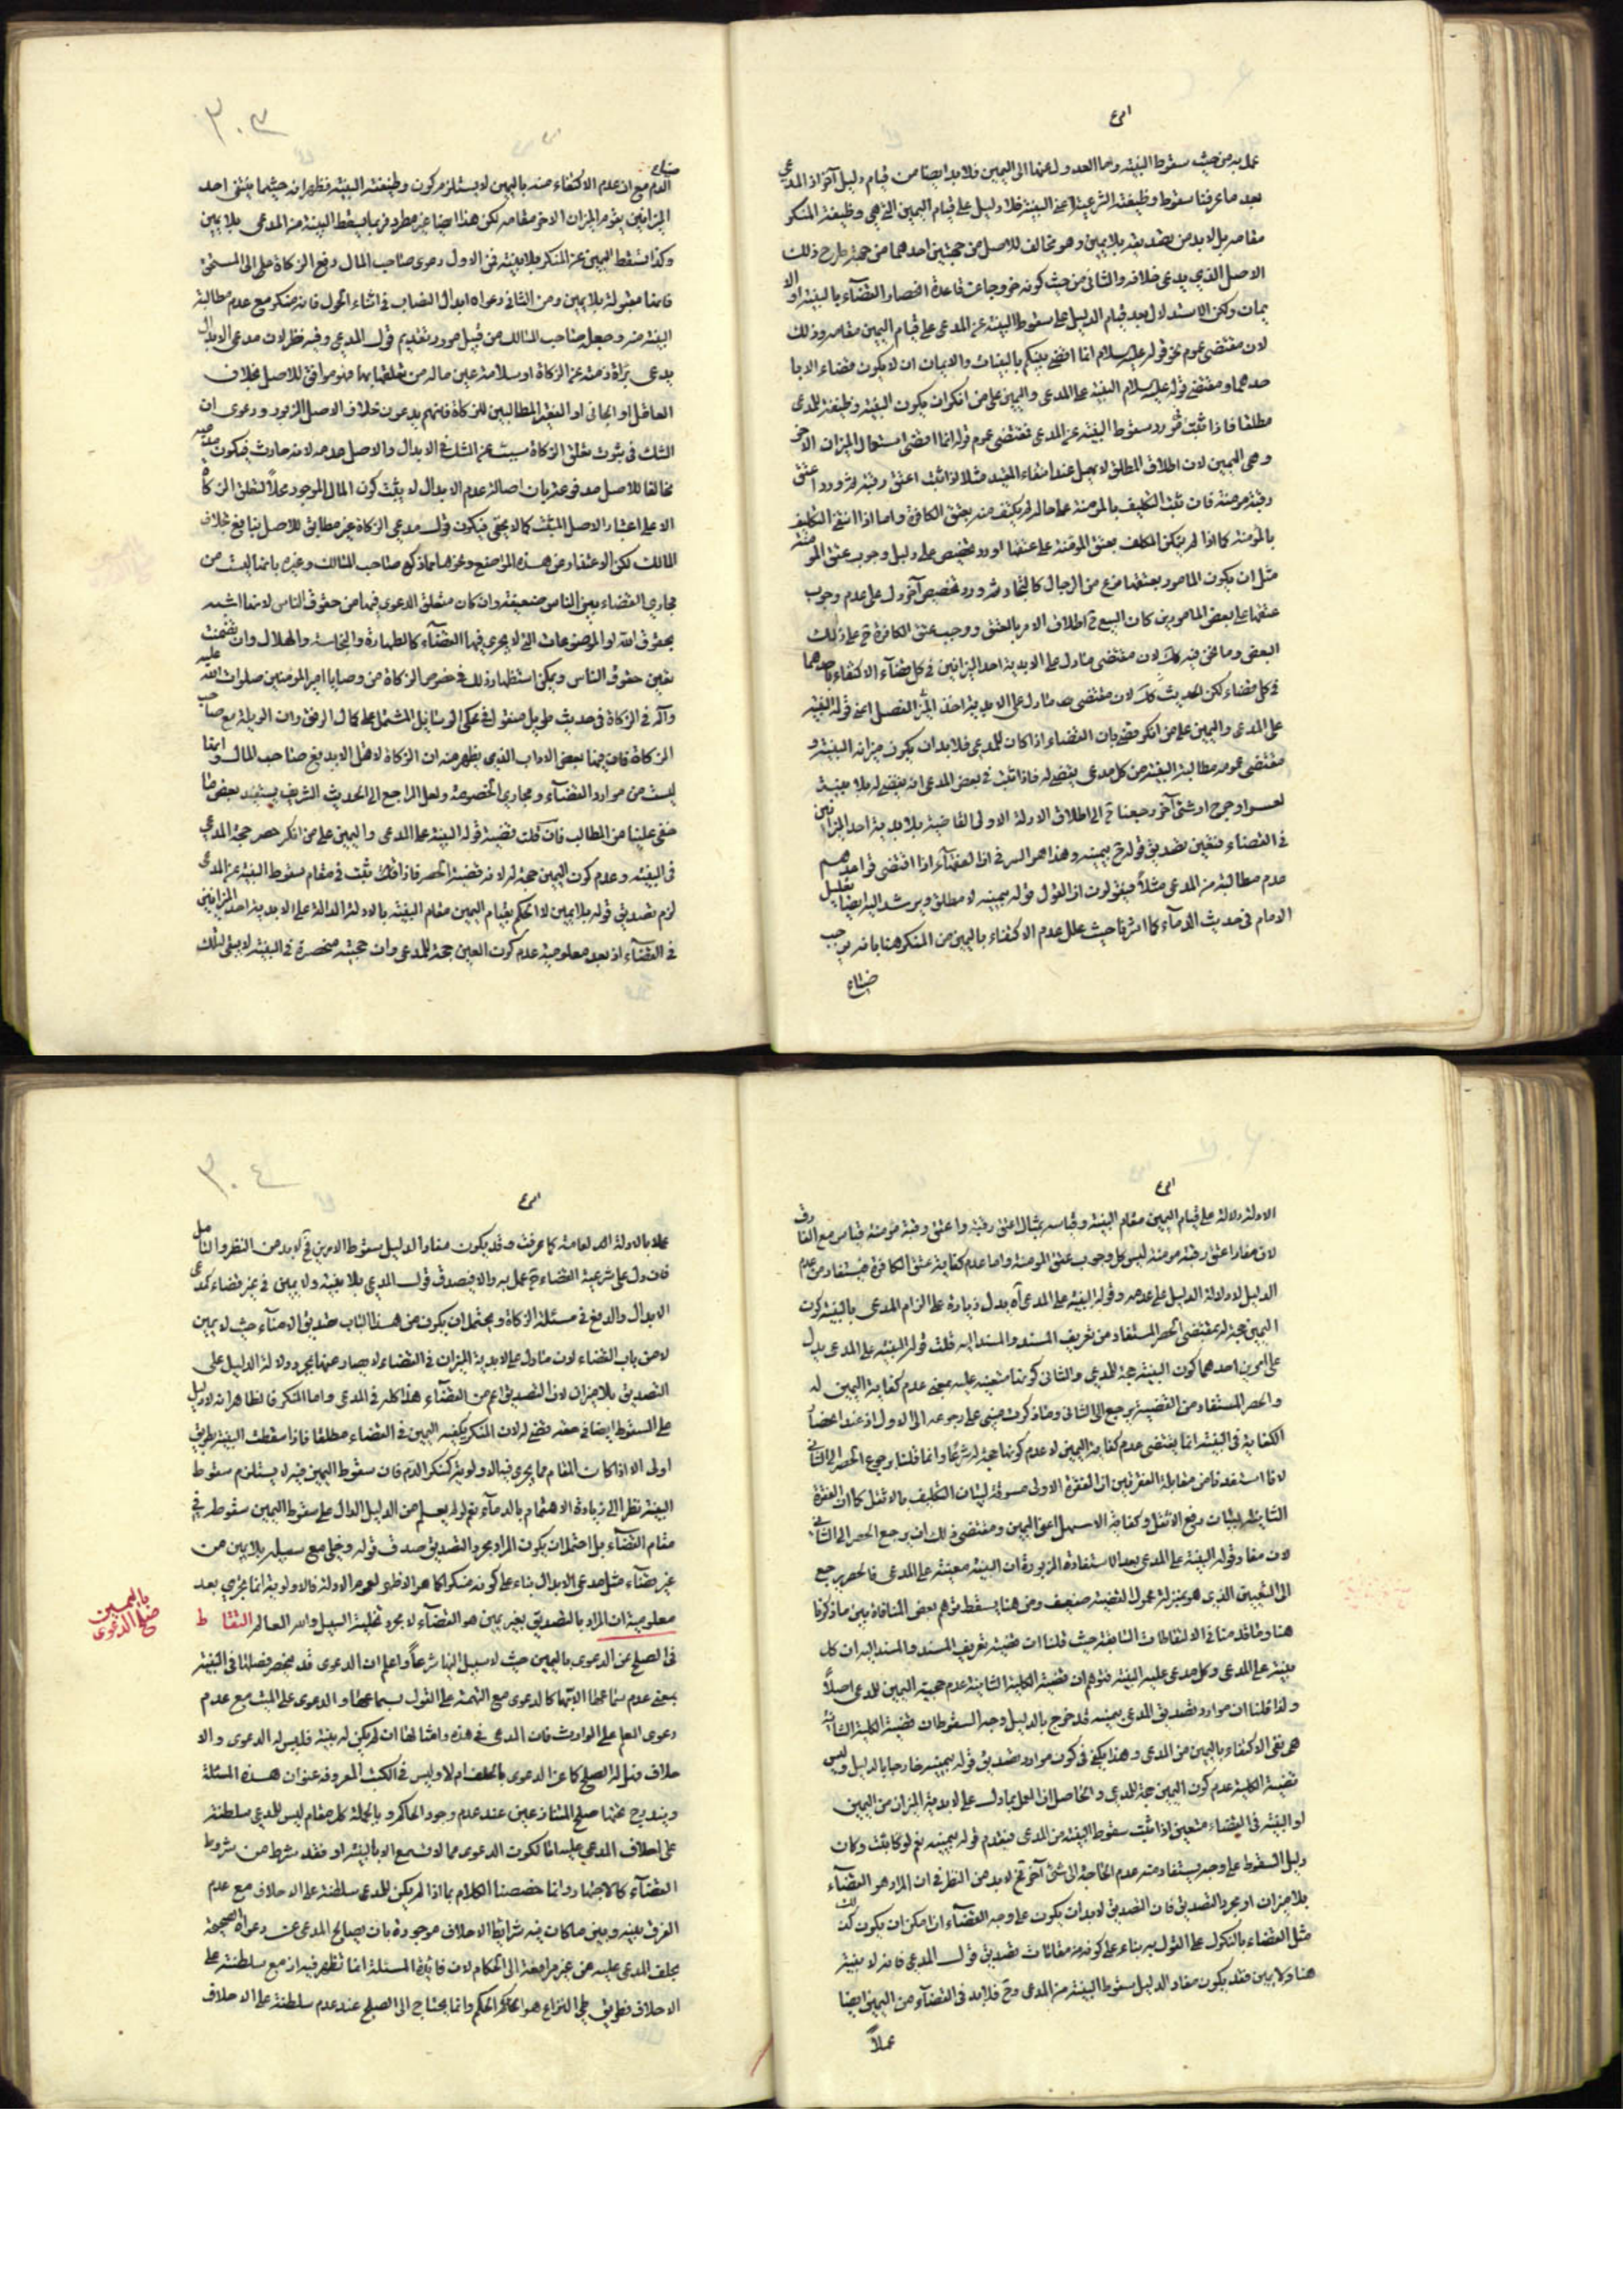 عمل به من حيث سقوط البينة واما العدول عنها الى اليمين فلا بد ايضا من قيام دليل آخر اذ المدعي
بعد ما عرفنا سقوط وظيفته الشرعية اعني البينة فلا دليل على قيام اليمين التي هي وظيفة المنكر
مقامه بل لا بد من تصديقه بلا يمين وهو مخالف للاصل من جهتين احدهما من جهة طرح ذلك
الاصل الذي يدعي خلافه والثاني من حيث كونه خروجا عن قاعدة انحصار القضآء بالبينة او الا
يمان ولكن الاستدلال بعد قيام الدليل على سقوط البينة عن المدعي على قيام اليمين مقامه وذلك
لان مقتضى عموم نحو قوله عليه السلام انما اقضي بينكم بالبينات والايمان ان لا يكون قضاء الا با
حدهما ومقتضى قوله عليه السلام البينة على المدعي واليمين على من انكر ان يكون البينة وظيفة للمدعي
مطلقا فاذا ثبت في مورد سقوط البينة عن المدعي فمقتضى عموم قوله انما اقضي استعمال الميزان الآخر
وهي اليمين لان اطلاق المطلق لا يهمل عند انتفاء المقيد مثلا اذا ثبت اعتق رقبة ثم ورد اعتق
رقبة مؤمنة فان ثبت التكليف بالمؤمنة على حاله لم يكتف منه بعتق الكافرة واما اذا انتفى التكليف
بالمؤمنة كما اذا لم يتمكن المكلف بعتق المؤمنة على عتقها او ورد تخصيص على دليل وجوب عتق المؤمنة
مثل ان يكون المامور بعتقها نوع من الرجال كالتجار ثم ورد تخصيص آخر دل على عدم وجوب
عتقها على بعض المامورين كان المتبع ح اطلاق الامر بالعتق ووجب عتق الكافرة ح على ذلك
البعض وما نحن فيه كك لان مقتضى ما دل على الابدية احد الميزانين في كل قضآء الاكتفاء باحدهما
في كل قضاء لكن الحديث
على المدعي واليمين على من انكر يقضي بان القضاء اذا كان للمدعي فلا بد ان يكون ميزانه البينة و
مقتضى عمومه مطالبة البينة من كل مدعي يقضى له فاذا ثبت في بعض المدعي انه يقضى له بلا بينة
لعسر او حرج او شئ آخر رجعنا ح الى اطلاق الادلة الاولى القاضية بلا بدية احد الميزانين
في القضاء فتعين تصديق قوله ح بيمينه وهذا هو السر في ان الفقهآء اذا اقتضى قواعدهم
عدم مطالبة من المدعي مثلاً فيقولون ان القول قوله بيمينه لا مطلق ويرشد اليه ايضا تعليل
الامام في حديث الدمآء كما اشرنا حيث علل عدم الاكتفاء باليمين من المنكر هنا بانه يوجب
ضياع
٣٠٣
ضياع
الدم مع ان عدم الاكتفاء منه باليمين لا يستلزم كون وظيفته البينة فظهر انه حيثما ينتفى احد
الميزانين يقوم الميزان الآخر مقامه لكن هذا ايضا غير مطرد فربما يسقط البينة من المدعي بلا يمين
وكذا تسقط اليمين عن المنكر بلا بينة فمن الاول دعوى صاحب المال دفع الزكاة على الى المستحق
فانها مقبولة بلا يمين ومن الثاني دعواه ابدال النصاب في اثناء الحول فانه منكر مع عدم مطالبة
البينة منه وجعل صاحب المسالك من قبيل موارد تقديم قول المدعي وفيه نظر لان مدعي الابدال
يدعي برآة ذمته عن الزكاة او سلامة عين ماله من تعلقها بها فهو موافق للاصل بخلاف
العامل او الجابي او الفقير المطالبين للزكاة فانهم يدعون خلاف الاصل المزبور ودعوى ان
الشك في ثبوت تعلق الزكاة سبب عن الشك في الابدال والاصل عدمه لانه حادث فيكون مدعيه
مخالفا للاصل مدفوعة بان اصالة عدم الابدال لا يثبت كون المال الموجود محلاً لتعلق الزكاة
الا على اعتبار الاصل المثبت كما لا يخفى فيكون قول مدعي الزكاة غير مطابق للاصل بخلاف
المالك لكن الاعتذار عن هذه المواضع ونحوها مما ذكره صاحب المسالك وغيره بانها ليست من
مجاري القضاء بين الناس ضعيفة وان كان متعلق الدعوى فيها من حقوق الناس لانها اشبه
بحقوق الله او الموضوعات التي لا يجري فيها القضآء كالطهارة والنجاسة والهلال وان تضمنت
تعيين حقوق الناس ويمكن استظهار ذلك في خصوص الزكاة من وصايا امير المؤمنين صلوات الله عليه
وآله في الزكاة في حديث طويل منقول في محكي الوسائل المشتمل على كمال الرفق مع صاحب
الزكاة فان فيها بعض الاداب الذي يظهر منه ان الزكاة لاهل الابد مع صاحب المال وانها
ليست من موارد القضآء ومجاري الخصومة ولعل الراجع الى الحديث الشريف يستفيد بعض ما
خفى علينا من المطالب فان قلت قضية قوله البينة على المدعي واليمين على من انكر حصر حجة المدعي
في البينة وعدم كون اليمين حجة له لانه قضية الحصر فاذا ثبت في مقام سقوط البينة عن المدعي
لزم تصديق قوله بلا يمين لا الحكم بقيام اليمين مقام البينة بالادلة الدالة على الابدية احد الميزانين
في القضآء اذ بعد معلومية عدم كون اليمين حجة للمدعي وان حجيته منحصرة في البينة لا يبقى لتلك
الادلة دلالة على قيام اليمين مقام البينة وقياسه بمثال اعتق رقبة واعتق رقبة مؤمنة قياس مع الفارق
لان مفاد اعتق رقبة مؤمنة ليس كل وجوب عتق المؤمنة واما عدم كفاية عتق الكافرة فيستفاد من عدم
الدليل لا دلالة الدليل على عدمه وقوله البينة على المدعي آه يدل زيادة على الزام المدعي بالبينة كون
اليمين حجة له بمقتضى الحصر المستفاد من تعريف المسند والمسند اليه قلت قوله البينة على المدعي يدل
على امرين احدهما كون البينة حجة للمدعي والثاني كونها متعينة عليه بمعنى عدم كفاية اليمين له
والحصر المستفاد من القضية يرجع الى الثاني وما ذكرت مبني على رجوعه الى الاول اذ عند انحصار
الكفاية في البينة انما يقتضي عدم كفاية اليمين لا عدم كونها حجة له شرعا وانما قلنا برجوع الحصر الى الثاني
لانا استفدنا من مقابلة الفقرتين ان الفقرة الاولى مسوقة لبيان التكليف بالاثقل كما ان الفقرة
الثانية لبيان رفع الاثقل وكفاية الاسهل اعني اليمين ومقتضى ذلك ان يرجع الحصر الى الثاني
لان مفاد قوله البينة على المدعي بعد الاستفادة المزبورة ان البينة معينة على المدعي فالحصر يرجع
الى التعيين الذي هو بمنزلة محمول القضية ضعيف ومن هنا يسقط توهم بعض المنافاة بين ما ذكرنا
هنا وما قدمنا في الالتقاطات السابقة حيث قلنا ان قضية تعريف المسند والمسند اليه ان كل
بينة على المدعي وكل مدعي عليه البينة فتوهم ان قضية الكلية الثانية عدم حجية اليمين للمدعي اصلاً
ولذا قلنا ان موارد تصديق المدعي بيمينه قد خرج بالدليل وجه السقوط ان قضية الكلية الثانية
هي نفى الاكتفاء باليمين من المدعي وهذا يكفي في كون موارد تصديق قوله بيمينه خارجا بالدليل وليس
قضية الكلية عدم كون اليمين حجة للمدعي والحاصل ان العمل بما دل على لابدية الميزان من اليمين
او البينة في القضاء متعين اذا ثبت سقوط البينة من المدعي فيقدم قوله بيمينه نعم لو كان
دليل السقوط على وجه يستفاد منه عدم الحاجة الى شئ آخر فح لا بد من النظر في ان المراد هو القضآء
بلا ميزان او مجرد التصديق فان التصديق لا بد ان يكون على وجه القضآء اذ امكن ان يكون كذلك
مثل القضاء بالنكول على القول به بناء على كونه من مقامات تصديق قول المدعي فانه لا بينة
هنا ولا يمين فقد يكون مفاد الدليل سقوط البينة من المدعي وح فلا بد في القضآء من اليمين ايضا
عملاً
٣٠٤
عملا بالادلة العامة كما عرفت وقد يكون مفاد الدليل سقوط الامرين ح لا بد من النظر والتامل
فان دل على شرعية القضاء ح عمل به والا فيصدق قول المدعي بلا بينة ولا يمين في غير قضاء كمدعي
الابدال والدفع في مسئلة الزكاة ويحتمل ان يكون من هذا الباب تصديق الامنآء حيث لا يمين
لا من باب القضاء لان ما دل على لابدية الميزان في القضاء لا يصار عنها بمجرد دلالة الدليل على
التصديق بلا ميزان لان التصديق اعم من القضآء هذا كله في المدعي واما المنكر فالظاهر انه لا دليل
على السقوط ايضا في حقه لان المنكر يكفيه اليمين في القضاء مطلقا فاذا سقطت البينة بطريق
اولى الا اذا كان المقام مما يجري فيه الاولوية كمنكر الدم فان سقوط اليمين فيه لا يستلزم سقوط
البينة نظرا الى زيادة الاهتمام بالدمآء نعم لو لم يعلم من الدليل الدال على سقوط اليمين سقوطه في
مقام القضآء بل احتمل ان يكون المراد مجرد التصديق صدق قوله وخلي مع سبيله بلا يمين من
غير قضآء مثل مدعي الابدال بناء على كونه منكرا كما هو الاظهر لعموم الادلة فالاولوية انما يجري بعد
معلومية ان المراد بالتصديق بغير يمين هو القضآء لا مجرد تخلية السبيل والله العالم التقاط
في الصلح عن الدعوى باليمين حيث لا سبيل اليها شرعاً واعلم ان الدعوى قد ينحصر فصلها في البينة
بمعنى عدم سماعها الا بها كالدعوى مع التهمة على القول بسماعها والدعوى على الميت مع عدم
دعوى العلم على الوارث فان المدعي في هذه وامثالها ان لم يكن له بينة فليس له الدعوى والا
حلاف فهل له الصلح كما عن الدعوى بالحلف ام لا وليس في الكتب المعروفة عنوان هذه المسئلة
ويندرج تحتها صلح المتنازعين عند عدم وجود الحاكم وبالجملة كل مقام ليس للمدعي سلطنة
على احلاف المدعي عليه اما لكون الدعوى مما لا تسمع الا بالبينة او فقد شرط من شروط
القضآء كالاجتهاد وانما خصصنا الكلام بما اذا لم يكن للمدعي سلطنة على الاحلاف مع عدم
الفرق بينه وبين ما كان فيه شرايط الاحلاف موجودة بان يصالح المدعي عن دعواه الصحيحة
بحلف المدعي عليه من غير مرافعة الى الحكام لان فائدة المسئلة انما تظهر فيه اذ مع سلطنة على
الاحلاف فطريق طي النزاع هو الحكم وانما يحتاج الى الصلح عند عدم سلطنة على الاحلاف
صلح الدعوى
باليمين